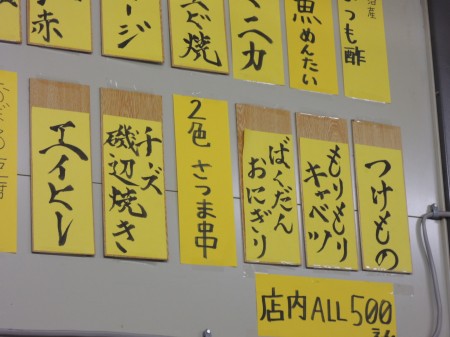 赤
ージ
えび焼
マニカ
魚めんたい
もつ酢
つけもの
もりもり
キャベツ
ばくだん
おにぎり
2色 さつま串
チーズ
磯辺焼き
エイヒレ
店内ALL500